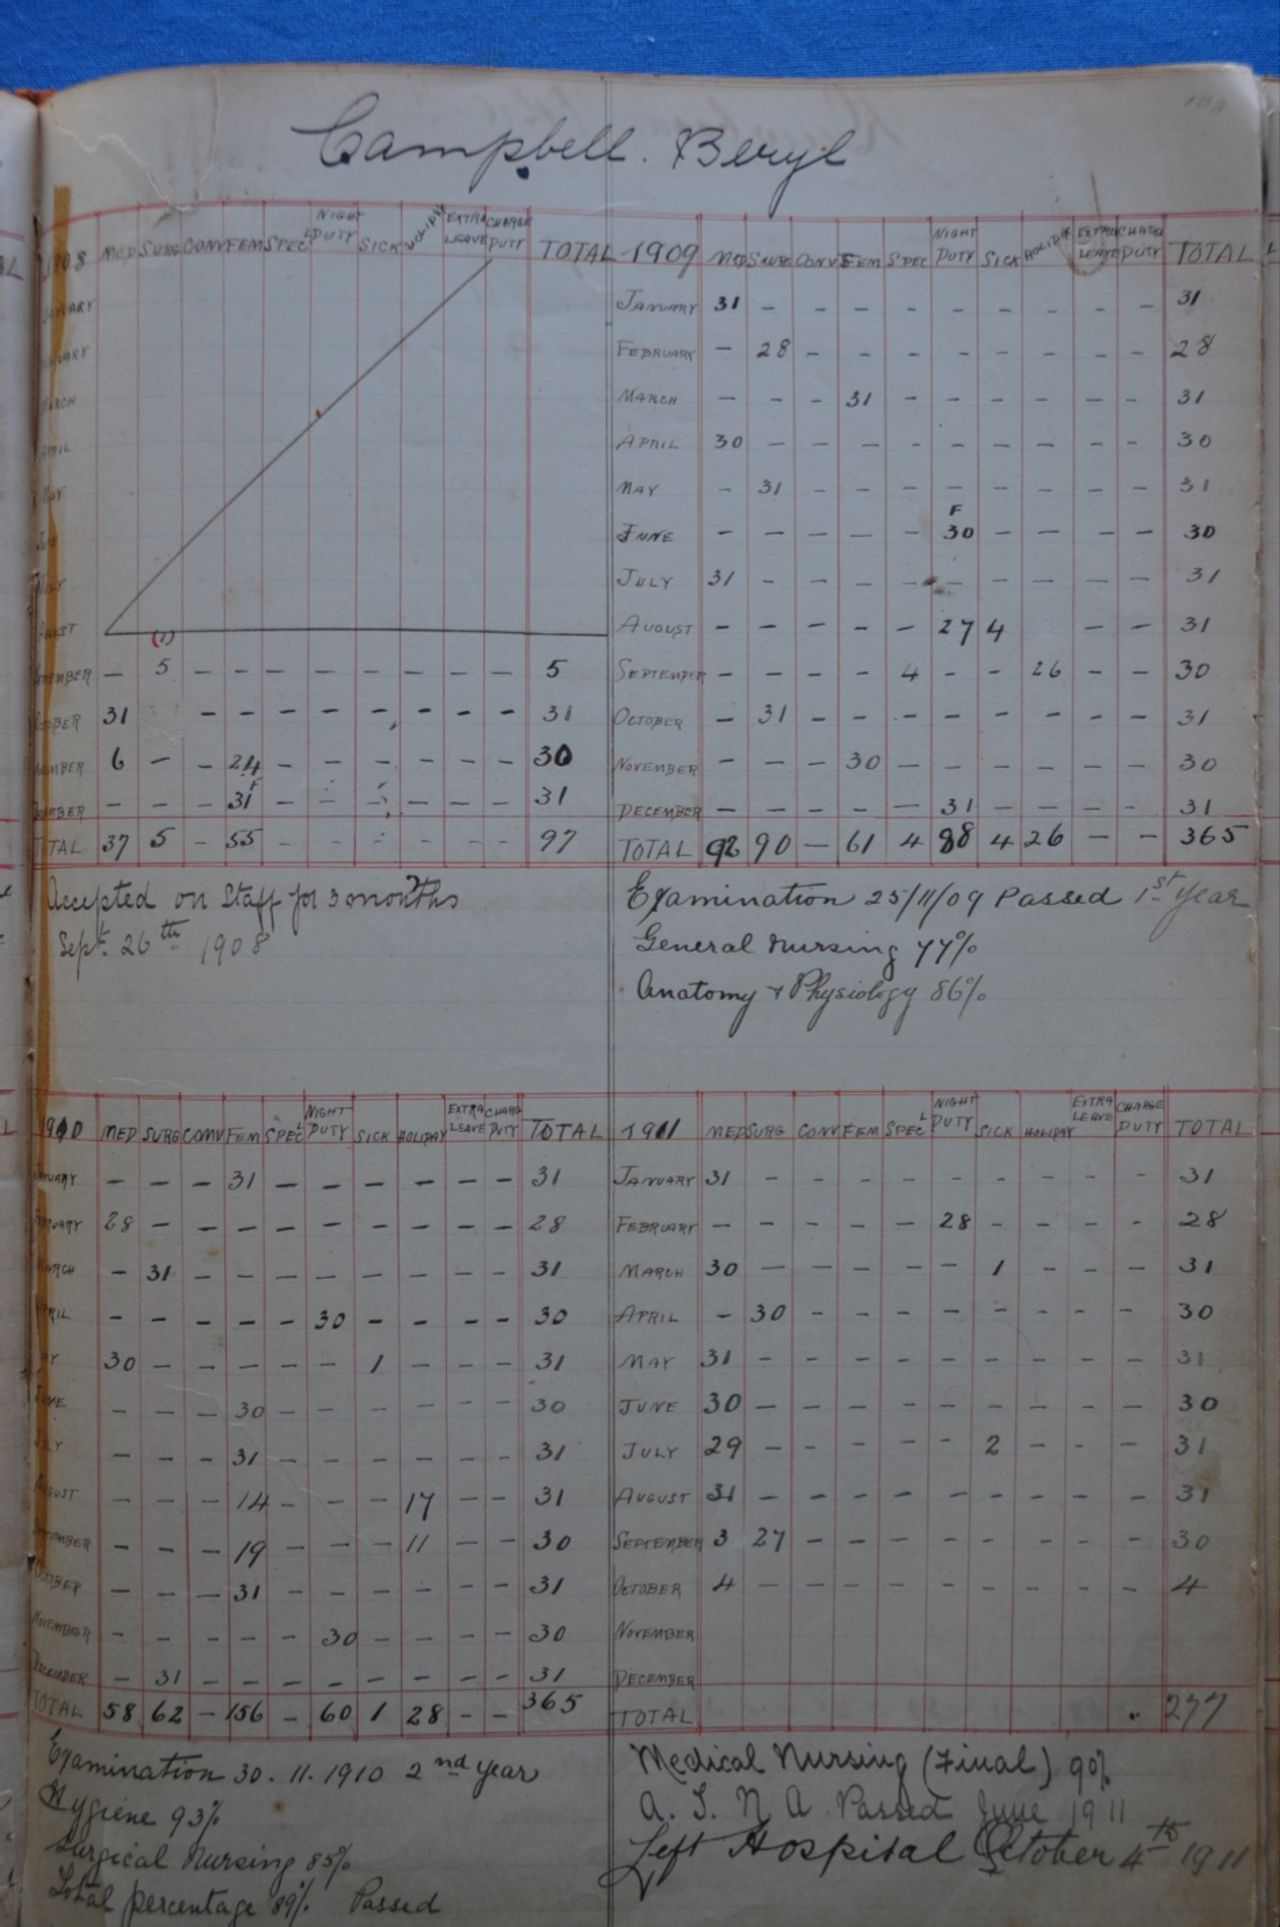 Campbell. Beryl
1908 MED SURG CONV FEM SPEC NIGHT DUTY SICK HOLIDAY EXTRA LEAVE CHARGE DUTY TOTAL
JANUARY
MARCH
APRIL
MAY
JUNE
JULY
AUGUST (1)
SEPTEMBER — 5 — — — — — — — — 5
OCTOBER 31 — — — — — — — — 31
NOVEMBER 6 — — 24 — — — — — — 30
DECEMBER — — — 31 — — — — — 31
TOTAL 37 5 — 55 — — — — — — 97
Accepted on Staff for 3 months
Sept. 26th 1908
1909 MED SURG CONV FEM SPEC NIGHT DUTY SICK HOLIDAY EXTRA LEAVE CHARGE DUTY TOTAL
JANUARY 31 — — — — — — — — — 31
FEBRUARY — 28 — — — — — — — — 28
MARCH — — — 31 — — — — — — 31
APRIL 30 — — — — — — — — — 30
MAY — 31 — — — — — — — — 31
JUNE — — — — — F 30 — — — — 30
JULY 31 — — — — — — — — — 31
AUGUST — — — — — 27 4 — — 31
SEPTEMBER — — — — 4 — — 26 — — 30
OCTOBER — 31 — — — — — — — — 31
NOVEMBER — — — 30 — — — — — — 30
DECEMBER — — — — — 31 — — — — 31
TOTAL 92 90 — 61 4 88 4 26 — — 365
Examination 25/11/09 Passed 1st Year
General Nursing 77%
Anatomy + Physiology 86%
1910 MED SURG CONV FEM SPECL NIGHT DUTY SICK HOLIDAY EXTRA LEAVE CHARGE DUTY TOTAL
JANUARY — — — 31 — — — — — — 31
FEBRUARY 28 — — — — — — — — — 28
MARCH — 31 — — — — — — — — 31
APRIL — — — — — 30 — — — — 30
MAY 30 — — — — — 1 — — — 31
JUNE — — — 30 — — — — — — 30
JULY — — — 31 — — — — — — 31
AUGUST — — — 14 — — — 17 — — 31
SEPTEMBER — — — 19 — — — 11 — — 30
OCTOBER — — — 31 — — — — — — 31
NOVEMBER — — — — — 30 — — — — 30
DECEMBER — 31 — — — — — — — — 31
TOTAL 58 62 — 156 — 60 1 28 — — 365
Examination 30. 11. 1910 2nd year
Hygiene 93%
Surgical Nursing 85%
Total percentage 89%. Passed
1911 MED SURG CONV FEM SPECL NIGHT DUTY SICK HOLIDAY EXTRA LEAVE CHARGE DUTY TOTAL
JANUARY 31 — — — — — — — — — 31
FEBRUARY — — — — — 28 — — — — 28
MARCH 30 — — — — — 1 — — — 31
APRIL — 30 — — — — — — — — 30
MAY 31 — — — — — — — — — 31
JUNE 30 — — — — — — — — — 30
JULY 29 — — — — — 2 — — — 31
AUGUST 31 — — — — — — — — — 31
SEPTEMBER 3 27 — — — — — — — — 30
OCTOBER 4 — — — — — — — — — 4
NOVEMBER
DECEMBER
TOTAL 277
Medical Nursing (Final) 90%
A. T. N A Passed June 1911
Left Hospital October 4th 1911